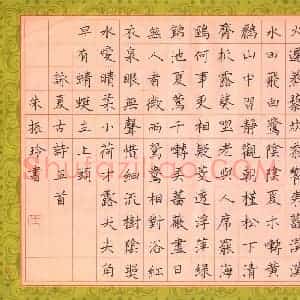 水田飛白鷺陰陰夏木囀黃
鸝山中習靜觀朝槿松下清
齋折露葵野老與人爭席罷海
鷗何事更相疑菱透浮萍綠
錦池夏鶯千囀弄薔薇盡日
無人看微雨鴛鴦相對浴紅
衣泉眼無聲惜細流樹陰照
水愛晴柔小荷才露尖尖角
早有蜻蜓立上頭
詠夏古詩五首
朱振玲書